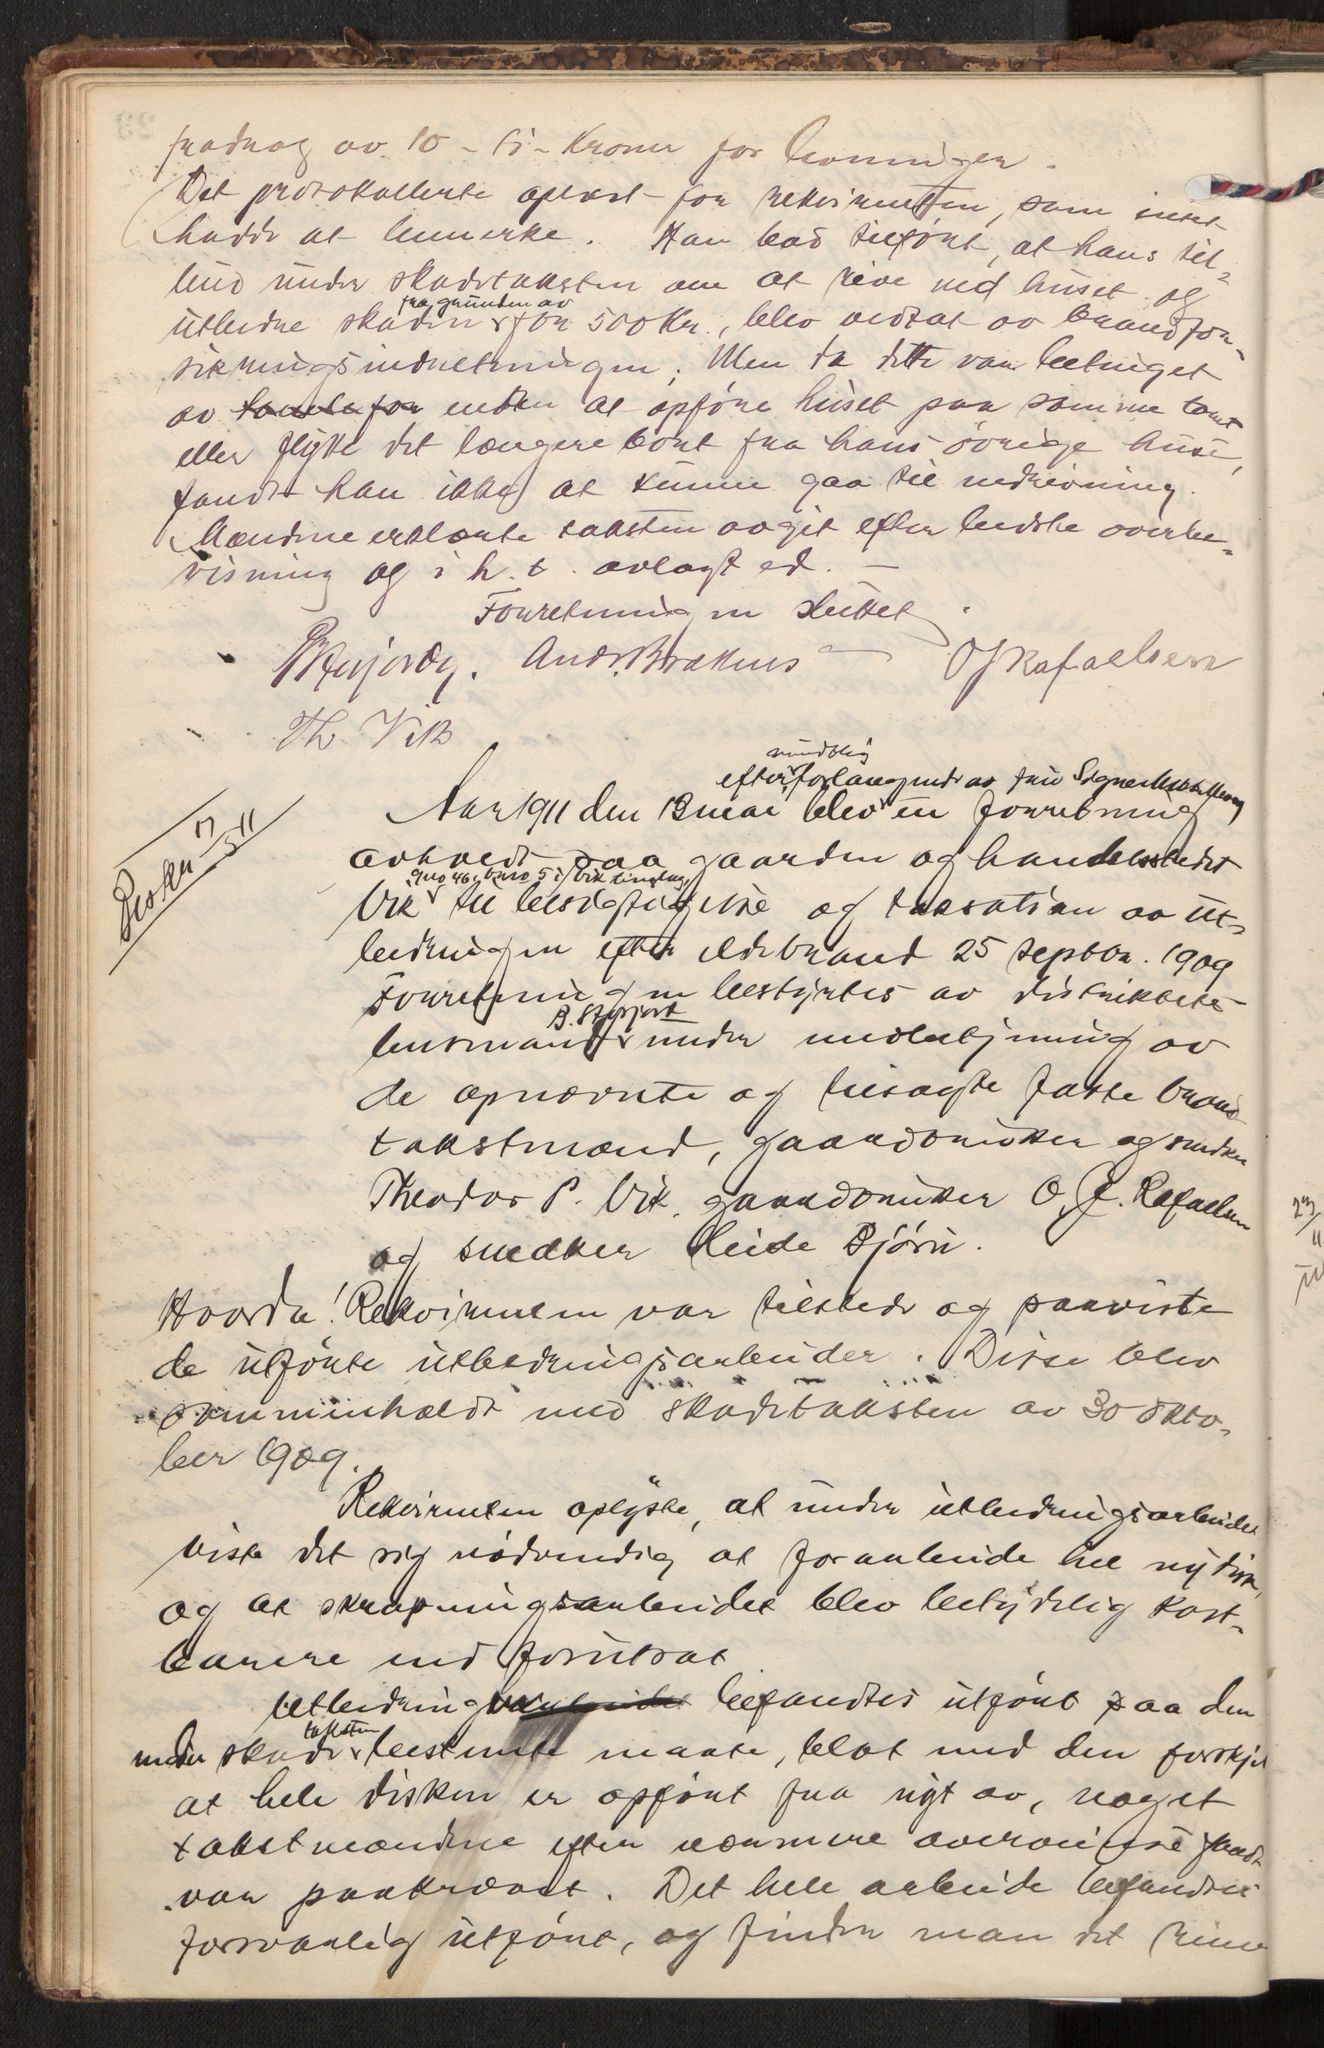 fradrag av 10 - ti - Kroner for
Det protokollerte oplæst for rekvirenten, som intet
hadde at bemerke. Han bad tilført, at hans til-
bud under skadetaksten om at rive ned huset og
utbedre skaden fra grunden av for 500 Kr., blev vedtat av brandfor-
sikringsindretningen. Men da dette var betinget
av enten at opføre huset paa samme tomt
eller flytte det længere bort fra hans øvrige huse,
fandt han ikke at kunne gaa til nedrivning.
Mændene erklærte taksten avgit efter bedste overbe-
visning og i h. t. avlagt ed. —
Forretningen sluttet.
Andr. Brakhus — O J Rafaelsen
Th. Vik
Aar 1911 den 13 mai blev efter mundtlig forlangende av fru Signe en forretning
avholdt paa gaarden og handelsstedet
Vik gno 46, bno 5 i Vik tinglag, til besigtigelse og taksation av ut-
bedringen efter ildebrand 25 septbr. 1909
Forretningen bestyrtes av distriktets
lensmand under medbetjening av
de opnævnte og tilsagte faste brand-
takstmænd, gaardbruker og snedker
Theodor P. Vik, gaardbruker O. J. Rafaelsen
og snedker Bjørn.
17/5 11
Hvorda! Rekvirenten var tilstede og paaviste
de utførte utbedringsarbeider. Disse blev
sammenholdt med skadetaksten av 30 okto-
ber 1909.
Rekvirenten oplyste, at under utbedringsarbeidet
viste det sig nødvendig at forarbeide hel ny disk,
og at skrapningsarbeidet blev betydelig kost-
barere end forutsat
Utbedringen befandtes utført paa den
under skadetaksten bestemte maate, blot med den forskjel
at hele disken er opført fra nyt av, noget
takstmændene efter nærmere overveielse fandt
var paakrævet. Det hele arbeide befandtes
forsvarlig utført, og finder man det